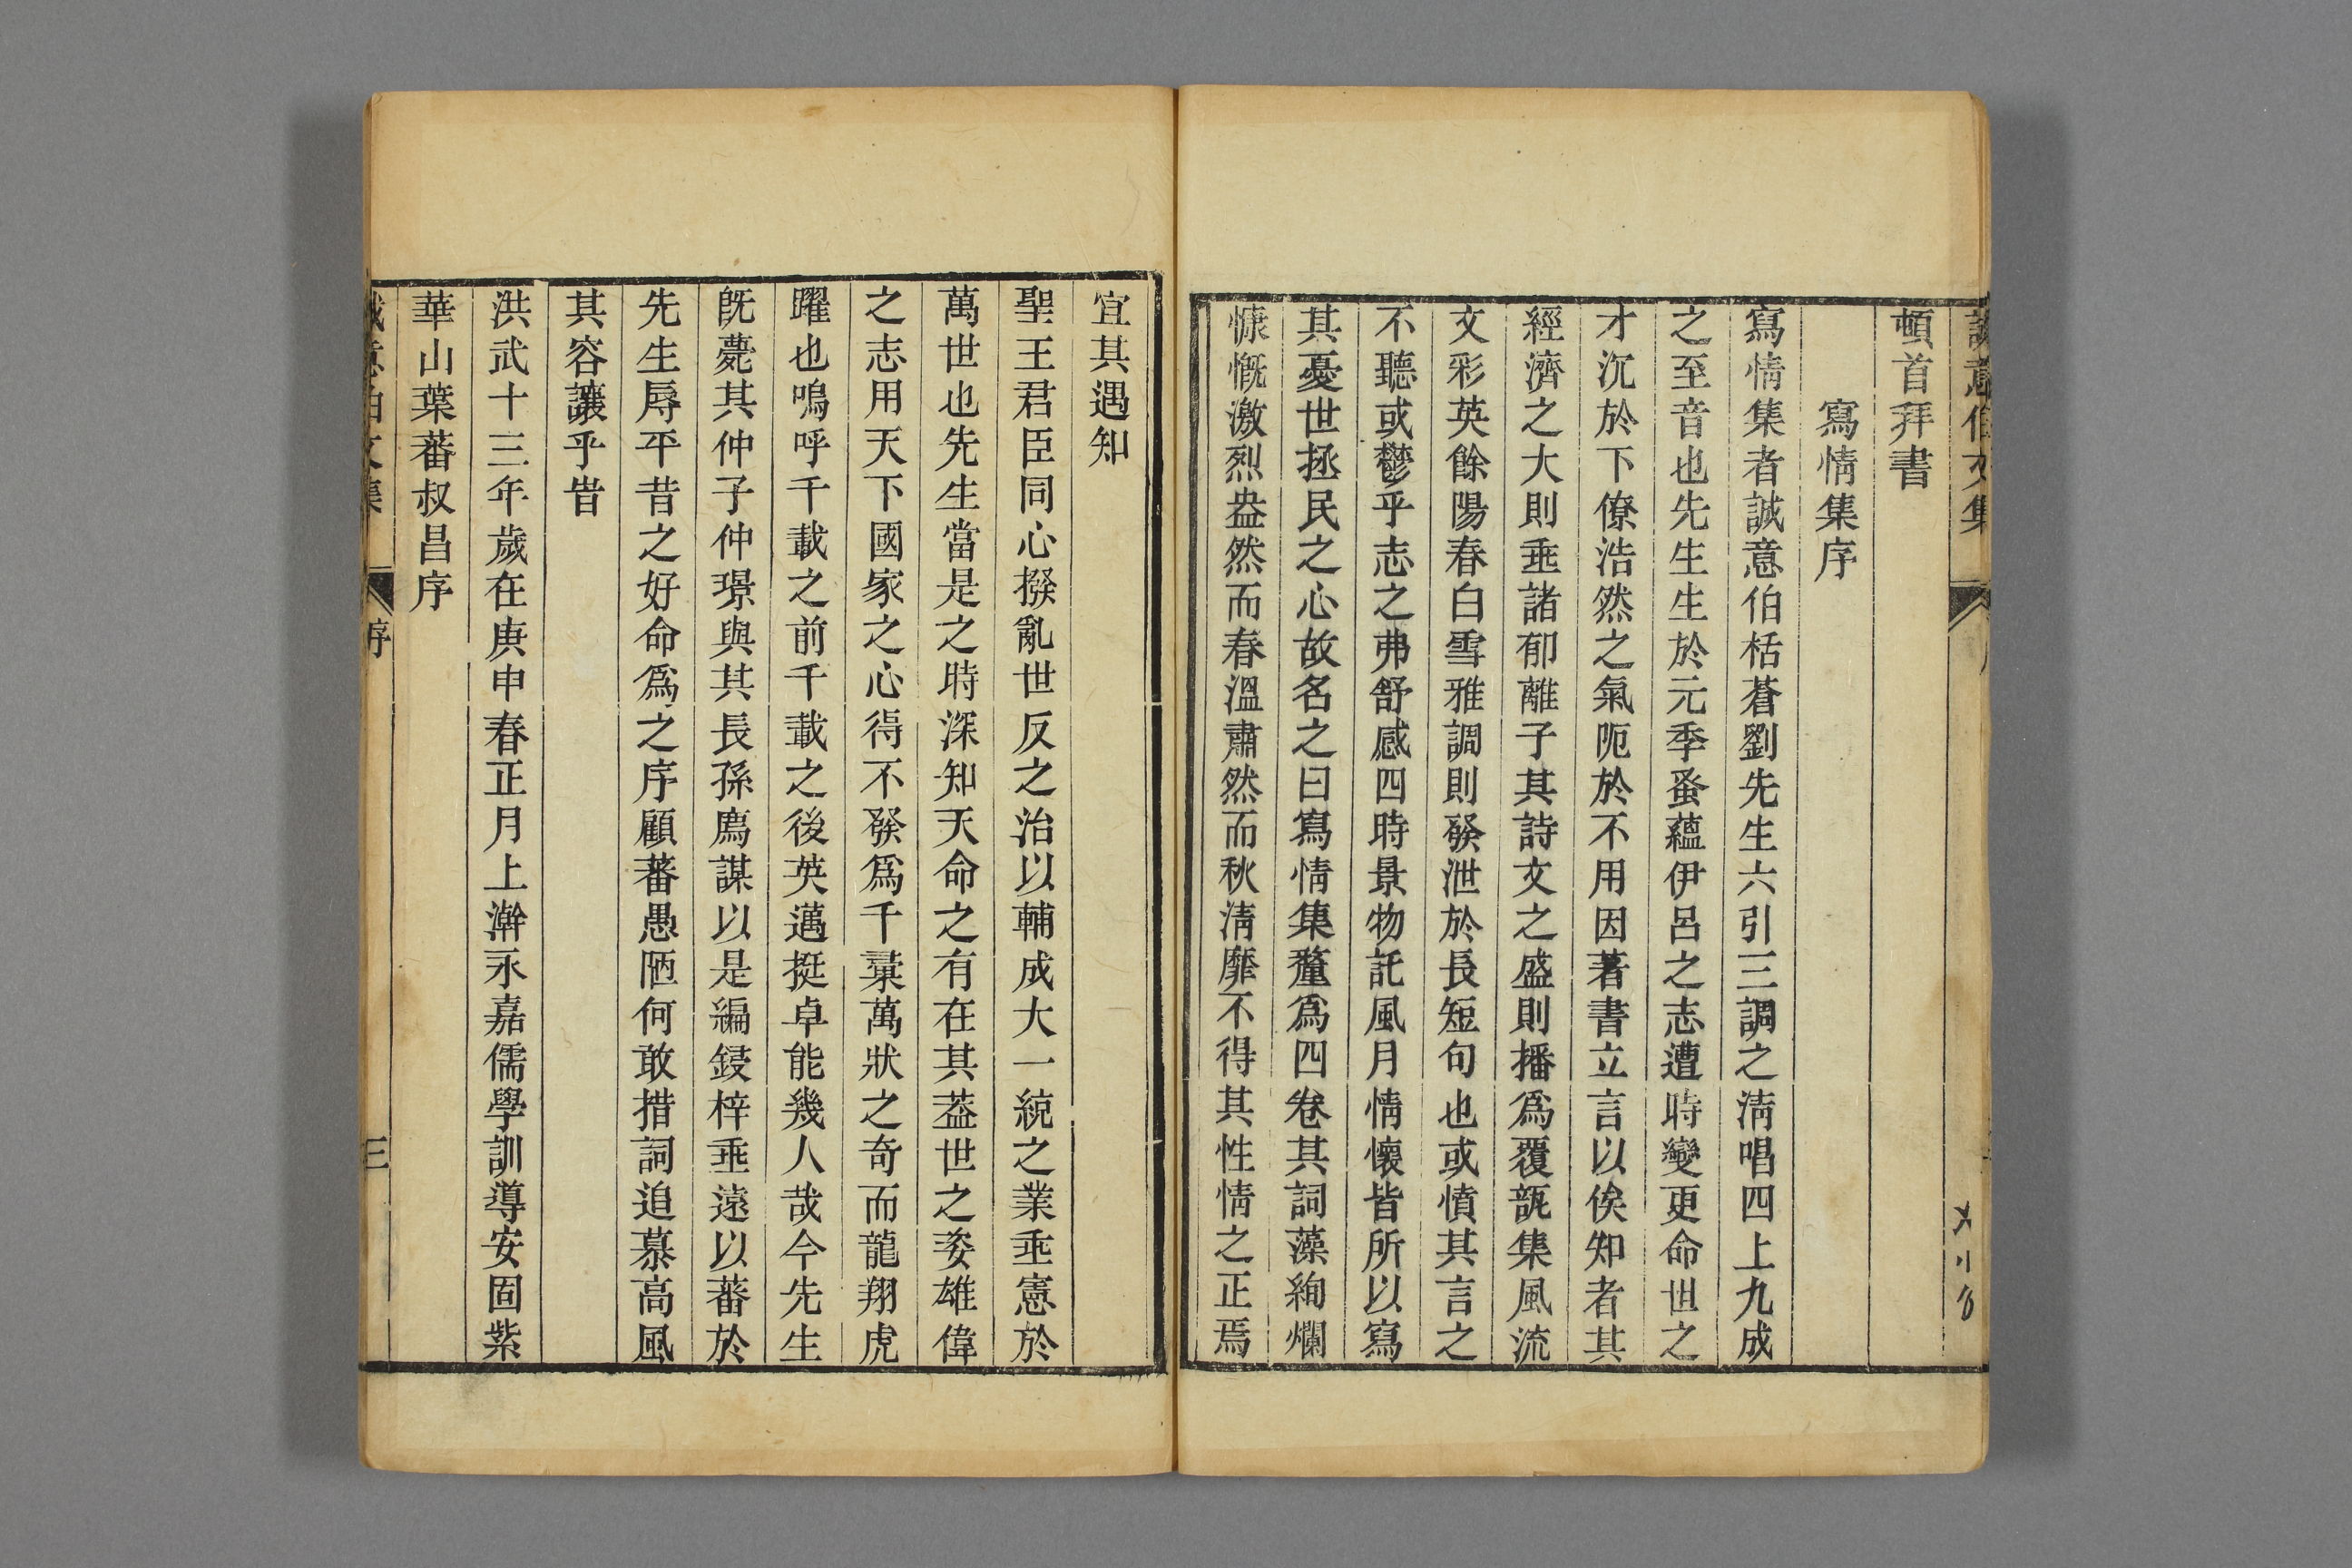 誠意伯文集
頓首拜書
寫情集序
寫情集者誠意伯栝蒼劉先生六引三調之淸唱四上九成
之至音也先生生於元季蚤蘊伊呂之志遭時變更命世之
才沉於下僚浩然之氣阨於不用因著書立言以俟知者其
經濟之大則垂諸郁離子其詩文之盛則播爲覆瓿集風流
文彩英餘陽春白雪雅調則發泄於長短句也或憤其言之
不聽或鬱乎志之弗舒感四時景物託風月情懷皆所以寫
其憂世拯民之心故名之曰寫情集釐爲四卷其詞藻絢爛
慷慨激烈盎然而春溫肅然而秋淸靡不得其性情之正焉
宜其遇知
聖王君臣同心撥亂世反之治以輔成大一統之業垂憲於
萬世也先生當是之時深知天命之有在其葢世之姿雄偉
之志用天下國家之心得不發爲千彙萬狀之奇而龍翔虎
躍也嗚呼千載之前千載之後英邁挺卓能幾人哉今先生
旣薨其仲子仲璟與其長孫廌謀以是編鋟梓垂遠以蕃於
先生辱平昔之好命爲之序顧蕃愚陋何敢措詞追慕高風
其容讓乎旹
洪武十三年歲在庚申春正月上澣永嘉儒學訓導安固紫
華山葉蕃叔昌序
誠意伯文集 序 三